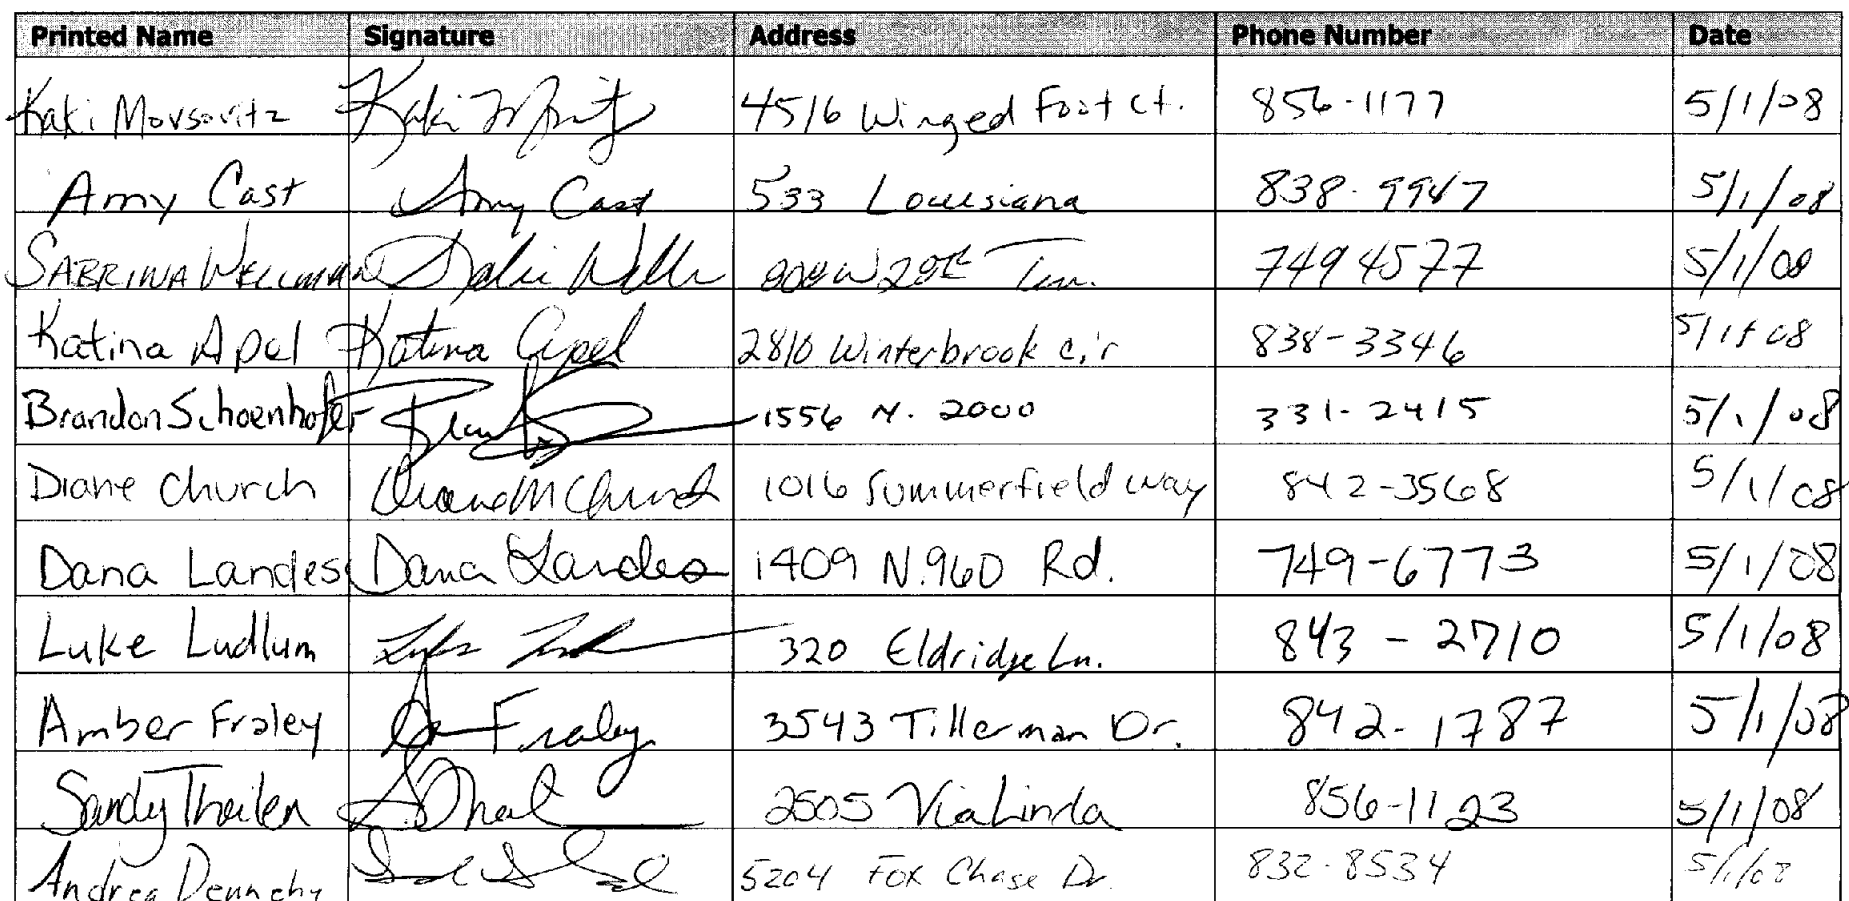 Printed Name Signature Address Phone Number Date
Kaki Movsovitz Kaki 4516 Winged Foot Ct. 856-1177 5/1/08
Amy Cast Amy Cast 533 Louisiana 838-9947 5/1/08
SABRINA WELLMAN 749 4577 5/1/08
Katina Apel Katina Apel 2810 Winterbrook cir 838-3346 5/1/08
Brandon Schoenhofer 1556 N. 2000 331-2415 5/1/08
Diane Church Diane M Church 1016 Summerfield Way 842-3568 5/1/08
Dana Landes Dana Landes 1409 N.960 Rd. 749-6773 5/1/08
Luke Ludlum Luke 320 Eldridge Ln. 843-2710 5/1/08
Amber Fraley Fraley 3543 Tillerman Dr. 842-1787 5/1/08
Sandy Theilen 2505 Via Linda 856-1123 5/1/08
Andrea Dennehy 5204 Fox Chase Dr. 832-8534 5/1/08